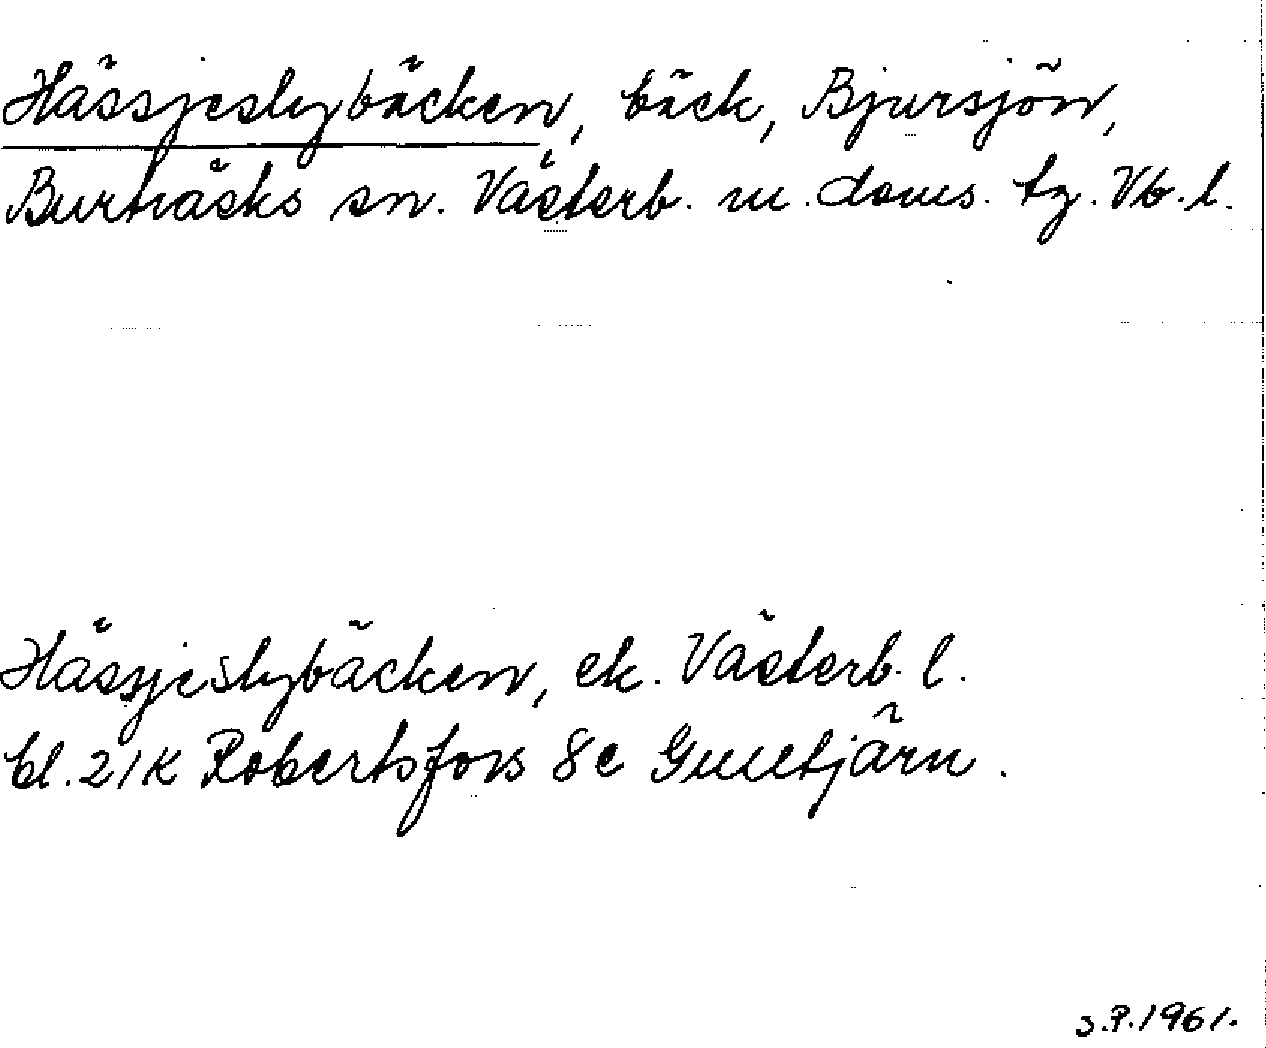 Hässjeslybäcken, bäck, Bjursjön,
Burträsks sn. Västerb. m. doms. tg. Vb. l.
Hässjeslybäcken, ek. Västerb. l.
bl. 21K Robertsfors 8c Gulltjärn.
S.P. 1961.